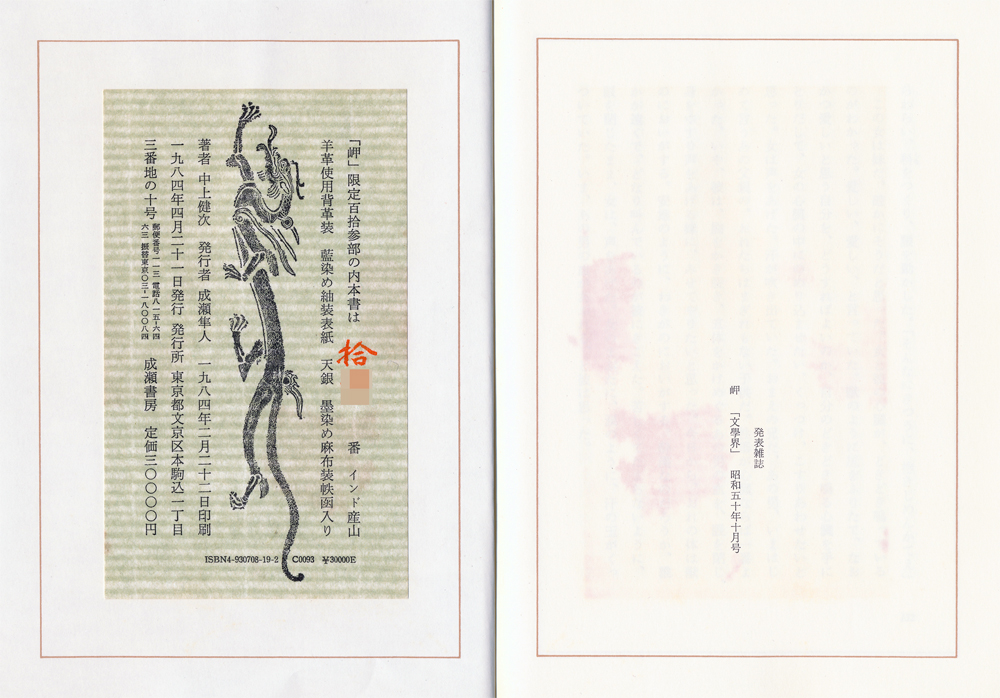 発表雑誌
岬 「文學界」 昭和五十年十月号
「岬」限定百拾参部の内本書は 拾 番 インド産山
羊革使用背革装 藍染め紬装表紙 天銀 墨染め麻布装帙函入り
著者 中上健次 発行者 成瀬隼人 一九八四年二月二十二日印刷
一九八四年四月二十一日発行 発行所 東京都文京区本駒込一丁目
三番地の十号
郵便番号一一三 電話八一五-六四
六三 振替東京〇三-一八〇〇八四
成瀬書房 定価三〇〇〇〇円
ISBN4-930708-19-2 C0093 ¥30000E